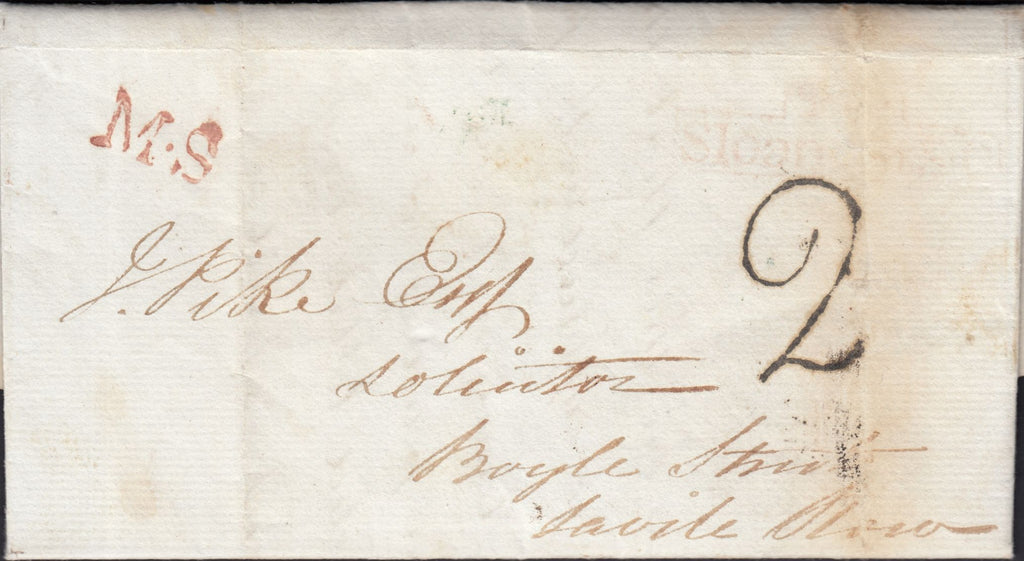 M.S
Sloan
2
J. Pike Esq
Solicitor
Boyle Street
Savile Row